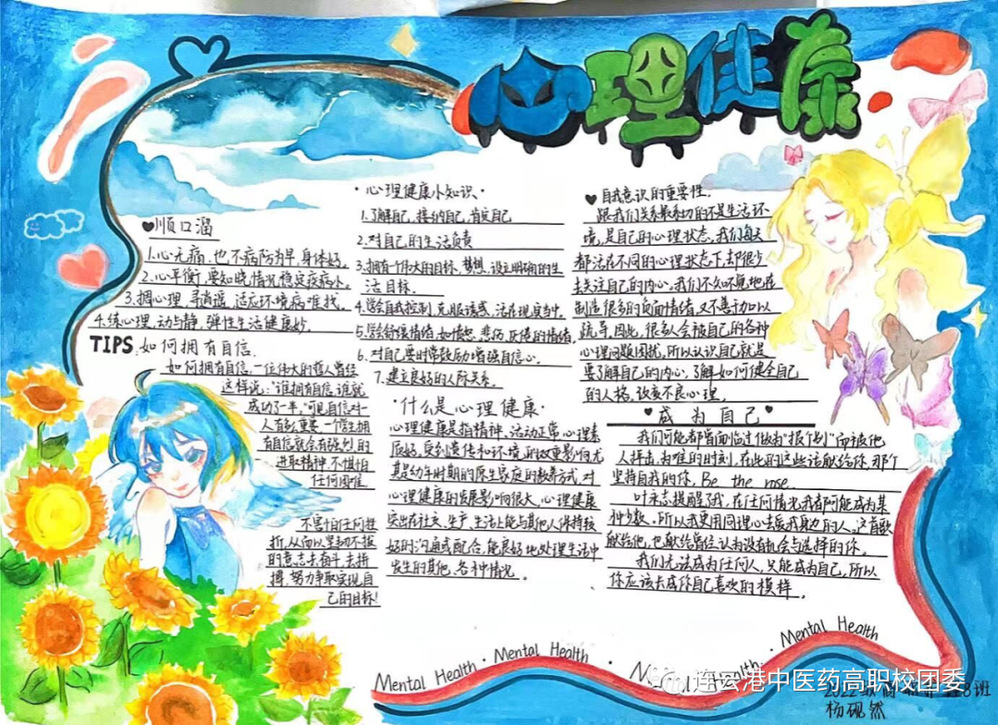 心理健康
♥顺口溜
1.心无病,也不病,防为早,身体好,
2.心平衡,要知晓,情况稳定疫病小.
3.调心理,寻逍遥,适应环境病难找.
4.练心理,动与静,弹性生活健康妙.
TIPS:如何拥有自信.
如何拥有自信,一位伟大的哲人曾经
这样说:"谁拥有自信,谁就
成功了一半,"可见自信对一
人有多重要一个学生拥
有自信就会有强烈的
进取精神,不惧怕
任何困难
不害怕任何挫
折,从而以坚韧不拔
的意志去奋斗去拼
搏,努力争取实现自
己的目标!
·心理健康小知识·
1.了解自己,接纳自己,肯定自己
2.对自己的生活负责
3.拥有个伟大的目标,梦想,设立明确的生
活目标.
4.学会自我控制,克服诱惑,活在现实中,
5.学会舒缓情绪,如愤怒,悲伤,厌倦的情绪,
6.对自己要时常鼓励增强自信心.
7.建立良好的人际关系.
·什么是心理健康·
心理健康是指精神,活动正常,心理素
质好,受到遗传和环境的双重影响尤
其是幼年时期的原生家庭的教养方式对
心理健康的发展影响很大,心理健康
突出在社交,生产,生活上能与其他人保持较
好的沟通或配合,能良好地处理生活中
发生的其他,各种情况.
♥自我意识的重要性.
跟我们关系最亲切的不是生活环
境,是自己的心理状态,我们每天
都活在不同的心理状态下,却很少
去关注自己的内心,我们不知不觉地在
制造很多的负面情绪,又不善于加以
疏导,因此,很多人会被自己的各种
心理问题困扰,所以认识自己就是
要了解自己的内心,了解如何健全自己
的人格,改变不良心理,
♥成为自己♥
我们可能都曾面临过做为"报个别"而被他
人抨击,为难的时刻,在此的这些话献给你,那个
坚持自我的你, Be the rose.
叶永志提醒了我,在任何情况我都可能成为某
种少数,所以我更用同理心去爱我身边的人,这首歌
献给他,也献给曾经认为没有机会与选择的你.
我们无法成为任何人,只能成为自己,所以
你应该去成你自己喜欢的模样,
Mental Health · Mental Health · Mental Health · Mental Health
连云港中医药高职校团委
杨砚然